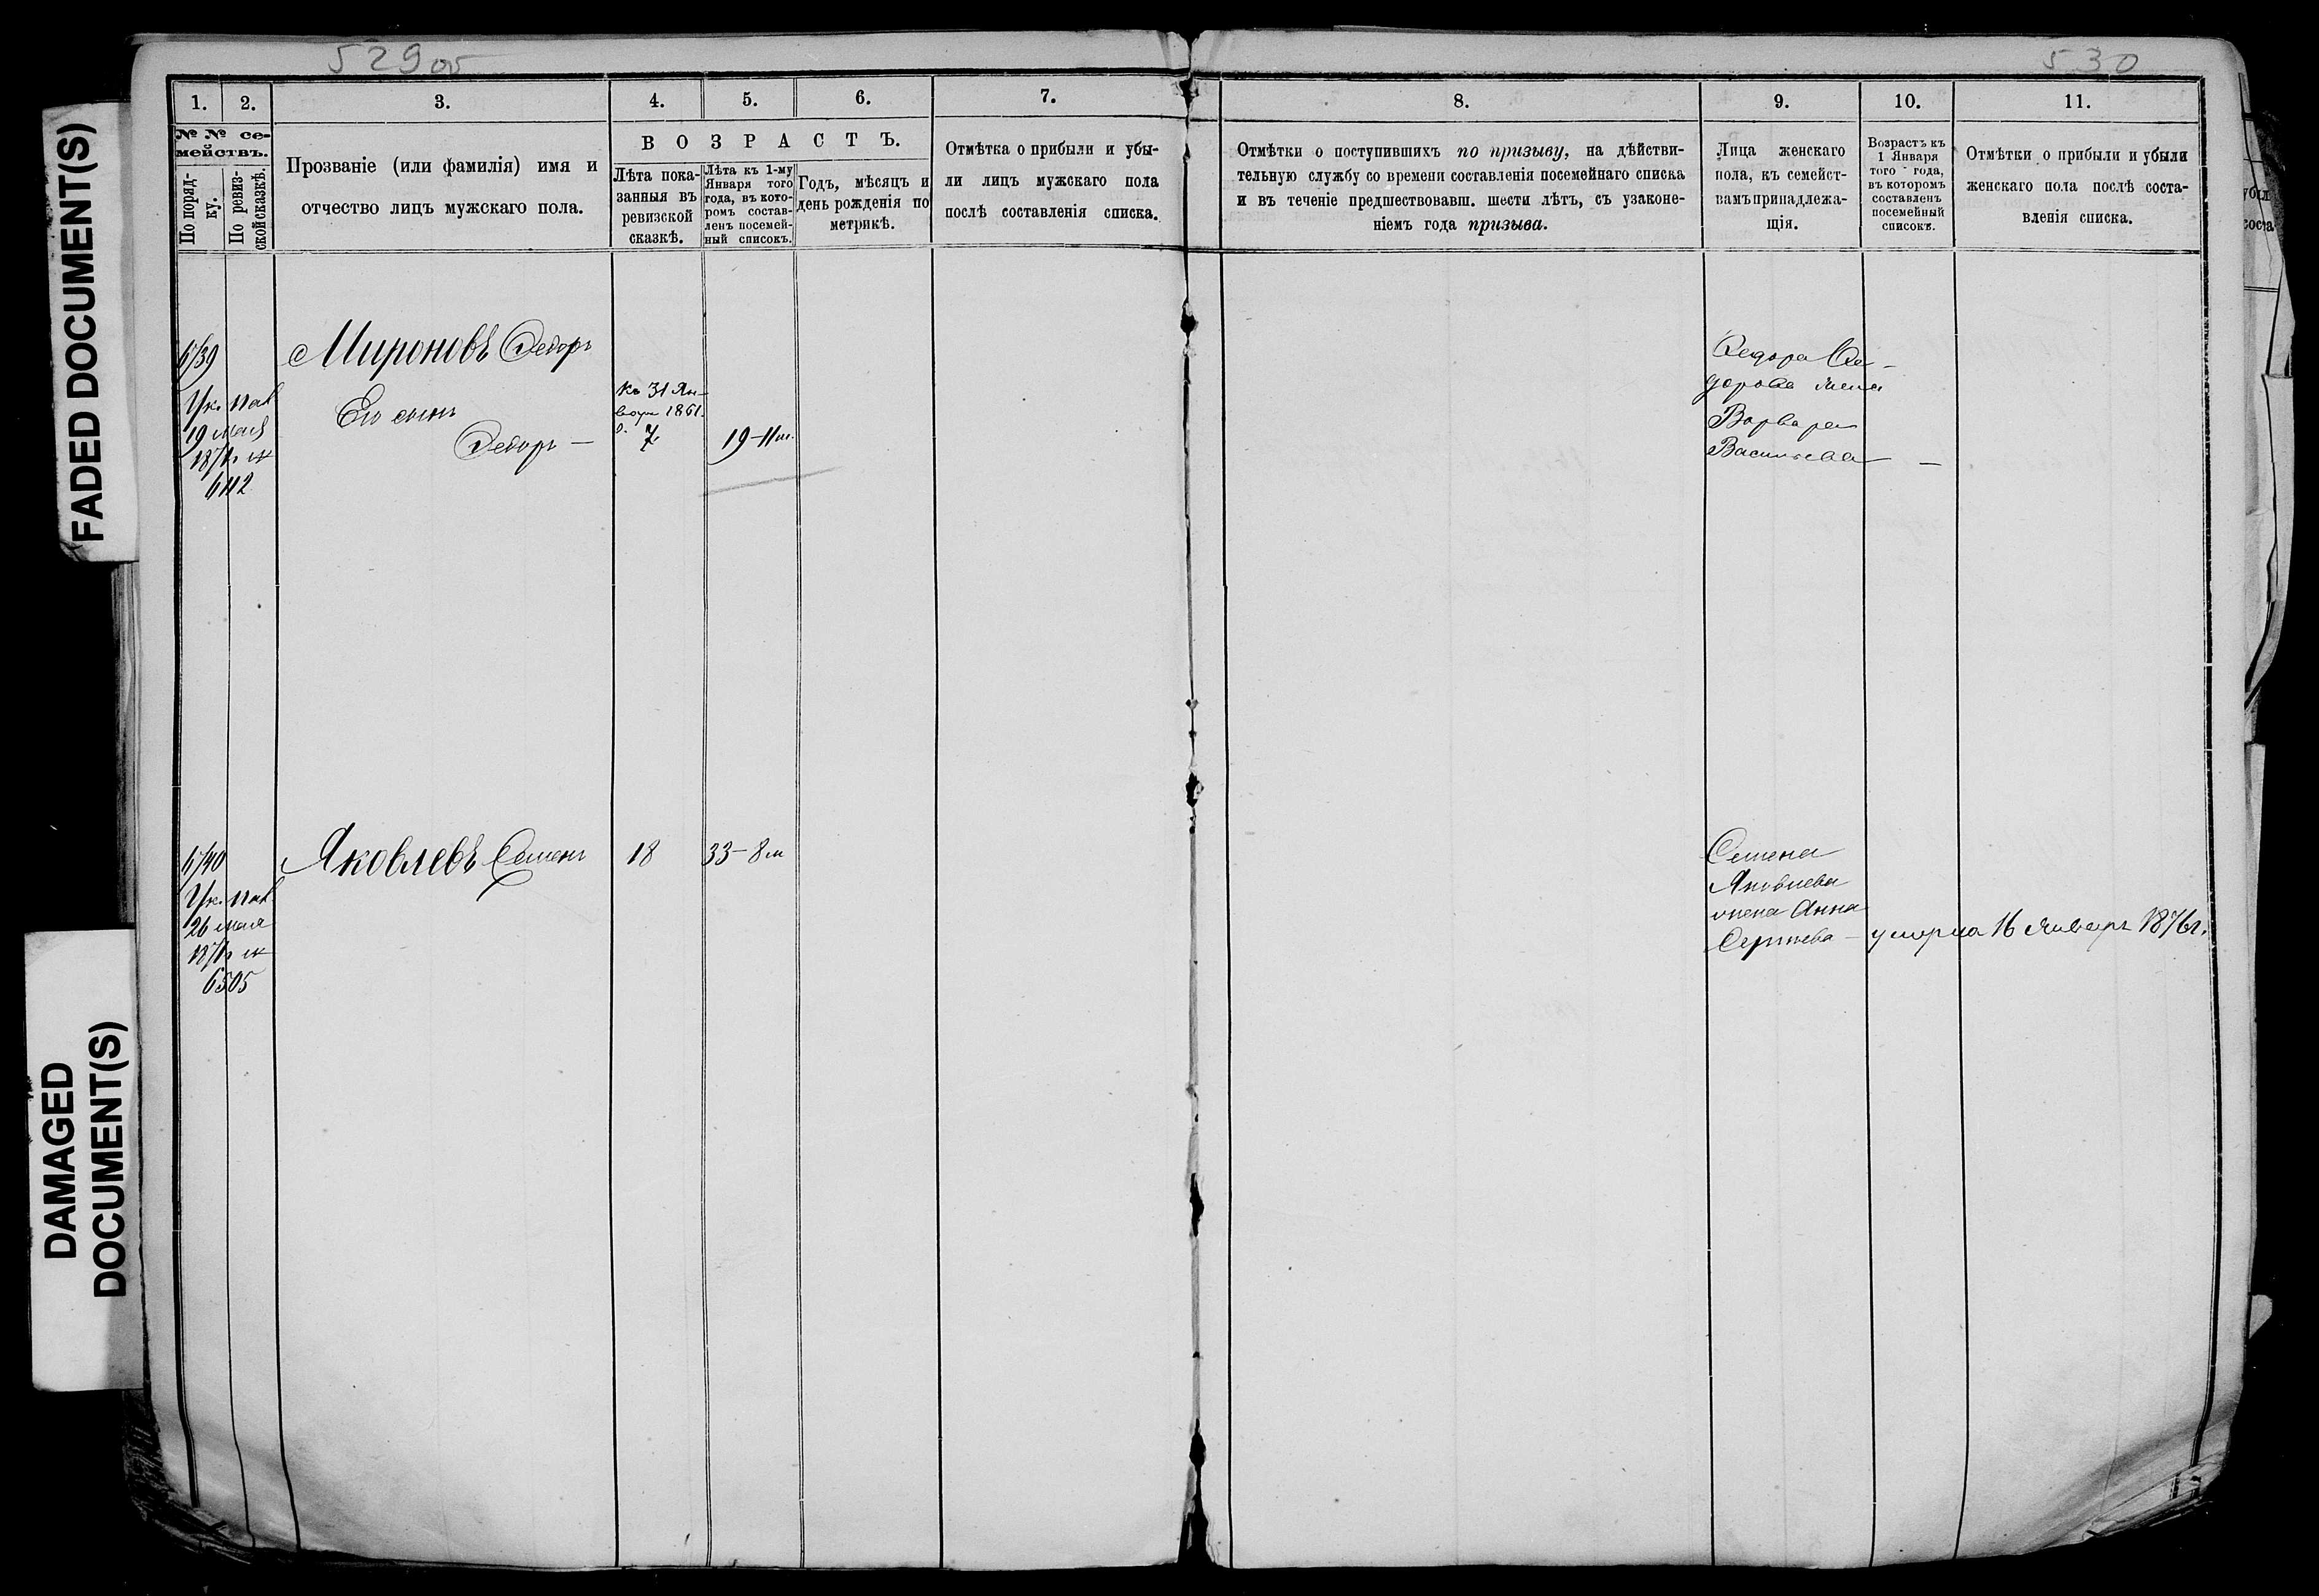 FADED DOCUMENT(S)
DAMAGED
DOCUMENT(S)
529об
530
1. 2. 3. 4. 5. 6. 7.
№ № се-
мействъ.
По поряд-
ку.
По ревиз-
ской сказкѣ.
Прозваніе (или фамилія) имя и
отчество лицъ мужскаго пола.
ВОЗРАСТЪ.
Лѣта пока-
занныя въ
ревизской
сказкѣ.
Лѣта къ 1-му
Января того
года, въ кото-
ромъ состав-
ленъ посемей-
ный списокъ.
Годъ, мѣсяцъ и
день рожденія по
метрикѣ.
Отмѣтка о прибыли и убы-
ли лицъ мужскаго пола
послѣ составленія списка.
8. 9. 10. 11.
Отмѣтки о поступившихъ по призыву, на дѣйстви-
тельную службу со времени составленія посемейнаго списка
и въ теченіе предшествовавш. шести лѣтъ, съ узаконе-
ніемъ года призыва.
Лица женскаго
пола, къ семейст-
вамъ принадлежа-
щія.
Возрастъ къ
1 Января
того года,
въ которомъ
составленъ
посемейный
списокъ.
Отмѣтки о прибыли и убыли
женскаго пола послѣ соста-
вленія списка.
Мироновъ Ѳедоръ
Его сынъ
Ѳедоръ —
Къ 31 Ян-
варя 1861.
7.
19-11м.
19 мая
6112
Ѳедора Ѳе-
дорова жена
Варвара
Васильева —
Яковлевъ Семенъ
18
33-8м
26 мая
6505
Семена
Яковлева
жена Анна
Сергѣева — умерла 16 Января 1876г.